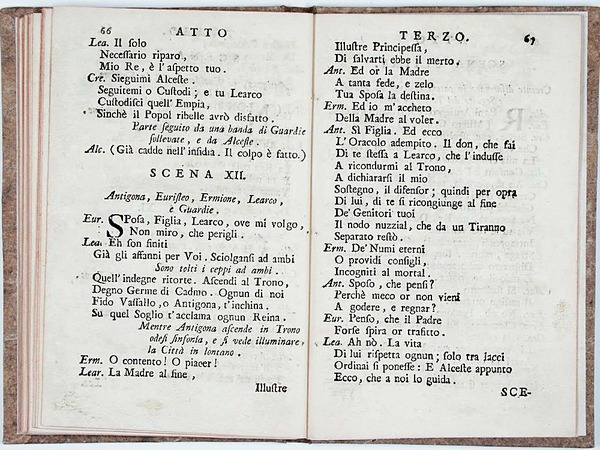 66 ATTO
Lea. Il solo
Necessario riparo,
Mio Re, è l'aspetto tuo.
Cre. Sieguimi Alceste.
Seguitemi o Custodi; e tu Learco
Custodisci quell'Empia,
Sinchè il Popol ribelle avrò disfatto.
Parte seguito da una banda di Guardie
sollevate, e da Alceste.
Alc. (Già cadde nell'insidia. Il colpo è fatto.)
SCENA XII.
Antigona, Euristeo, Ermione, Learco,
e Guardie.
Eur. SPosa, Figlia, Learco, ove mi volgo,
Non miro, che perigli.
Lea. Eh son finiti
Già gli affanni per Voi. Sciolgansi ad ambi
Sono tolti i ceppi ad ambi.
Quell'indegne ritorte. Ascendi al Trono,
Degno Germe di Cadmo. Ognun di noi
Fido Vassallo, o Antigona, t'inchina.
Su quel Soglio t'acclama ognun Reina.
Mentre Antigona ascende in Trono
odesi sinfonia, e si vede illuminare,
la Città in lontano.
Erm. O contento! O piacer!
Lear. La Madre al fine,
Illustre
TERZO. 67
Illustre Principessa,
Di salvarti ebbe il merto.
Ant. Ed or la Madre
A tanta fede, e zelo
Tua Sposa la destina.
Erm. Ed io m'acheto
Della Madre al voler.
Ant. Sì Figlia. Ed ecco
L'Oracolo adempito. Il don, che fai
Di te stessa a Learco, che l'indusse
A ricondurmi al Trono,
A dichiararsi il mio
Sostegno, il difensor; quindi per opra
Di lui, di te si ricongiunge al fine
De' Genitori tuoi
Il nodo nuzzial, che da un Tiranno
Separato restò.
Erm. De' Numi eterni
O providi consigli,
Incogniti al mortal.
Ant. Sposo, che pensi?
Perchè meco or non vieni
A godere, e regnar?
Eur. Penso, che il Padre
Forse spira or trafitto.
Lea. Ah nò. La vita
Di lui rispetta ognun; solo tra lacci
Ordinai si ponesse: E Alceste appunto
Ecco, che a noi lo guida.
SCE-